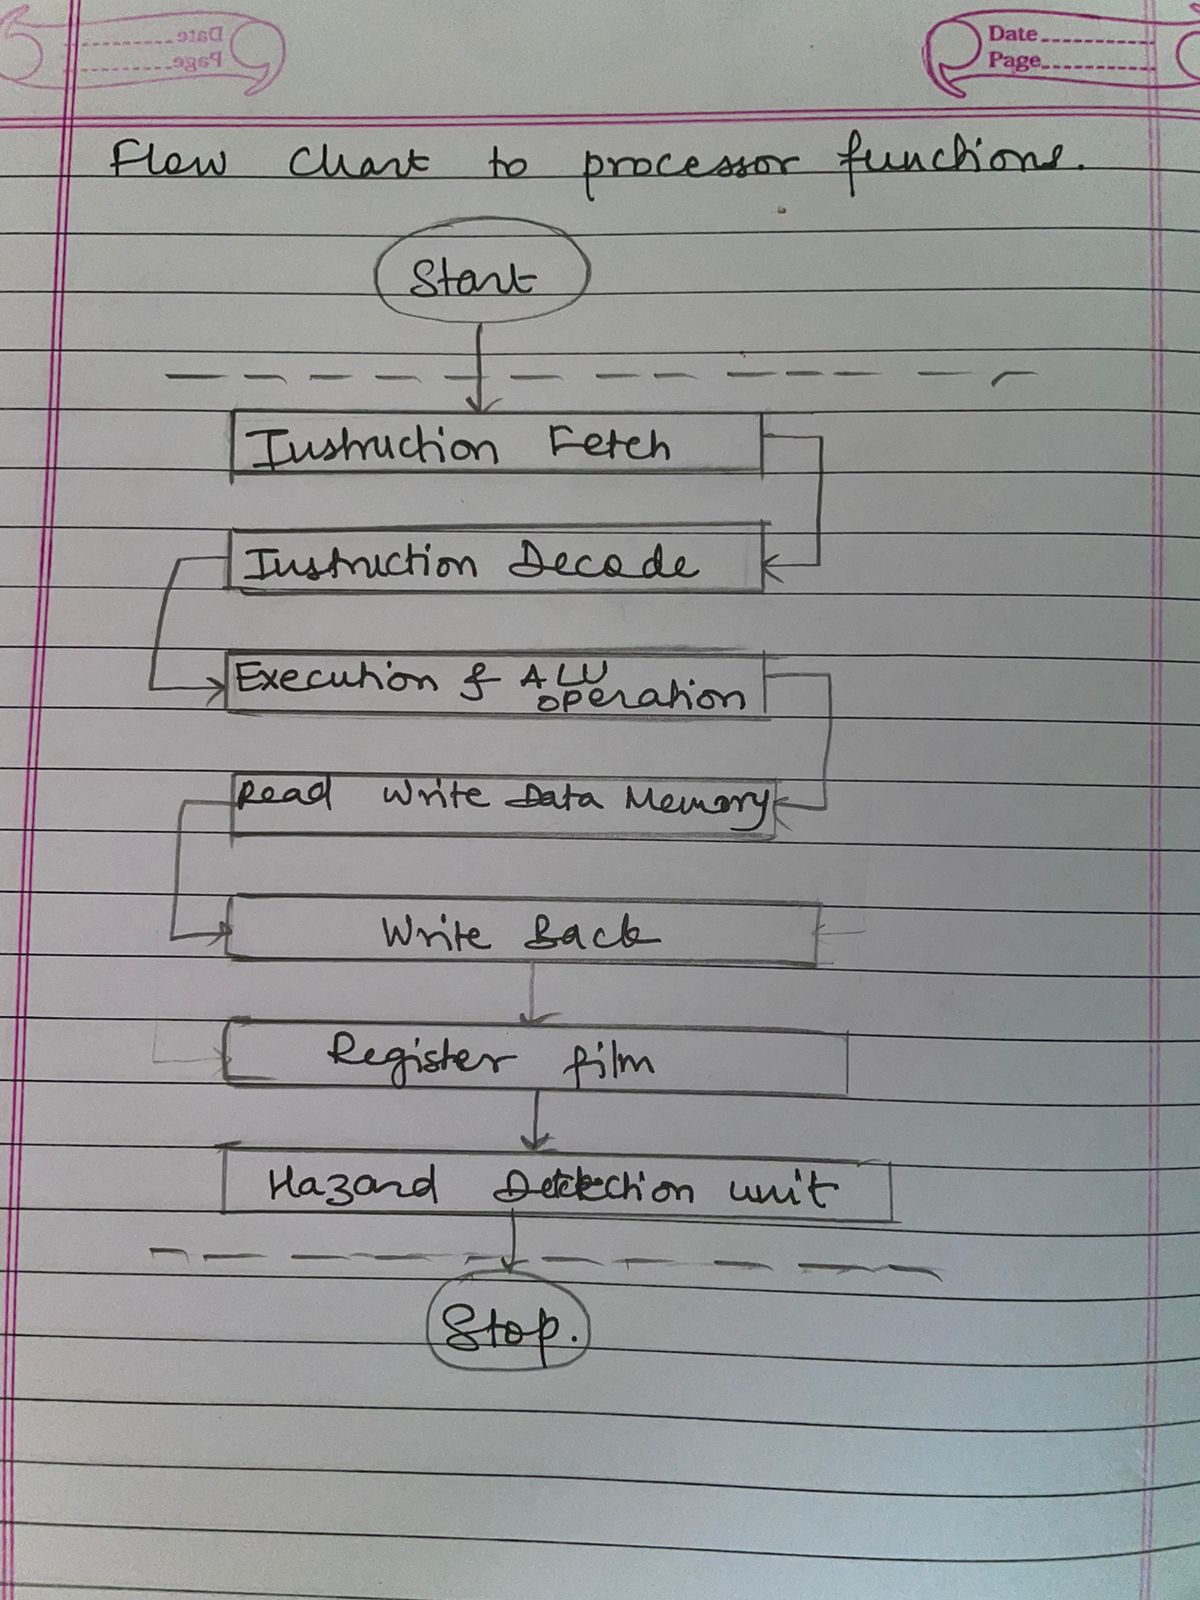 Date
Page
Date
Page
Flow Chart to processor functions.
Start
Instruction Fetch
Instruction Decode
Execution & ALU
operation
Read Write Data Memory
Write Back
Register film
Hazard Detection unit
Stop.